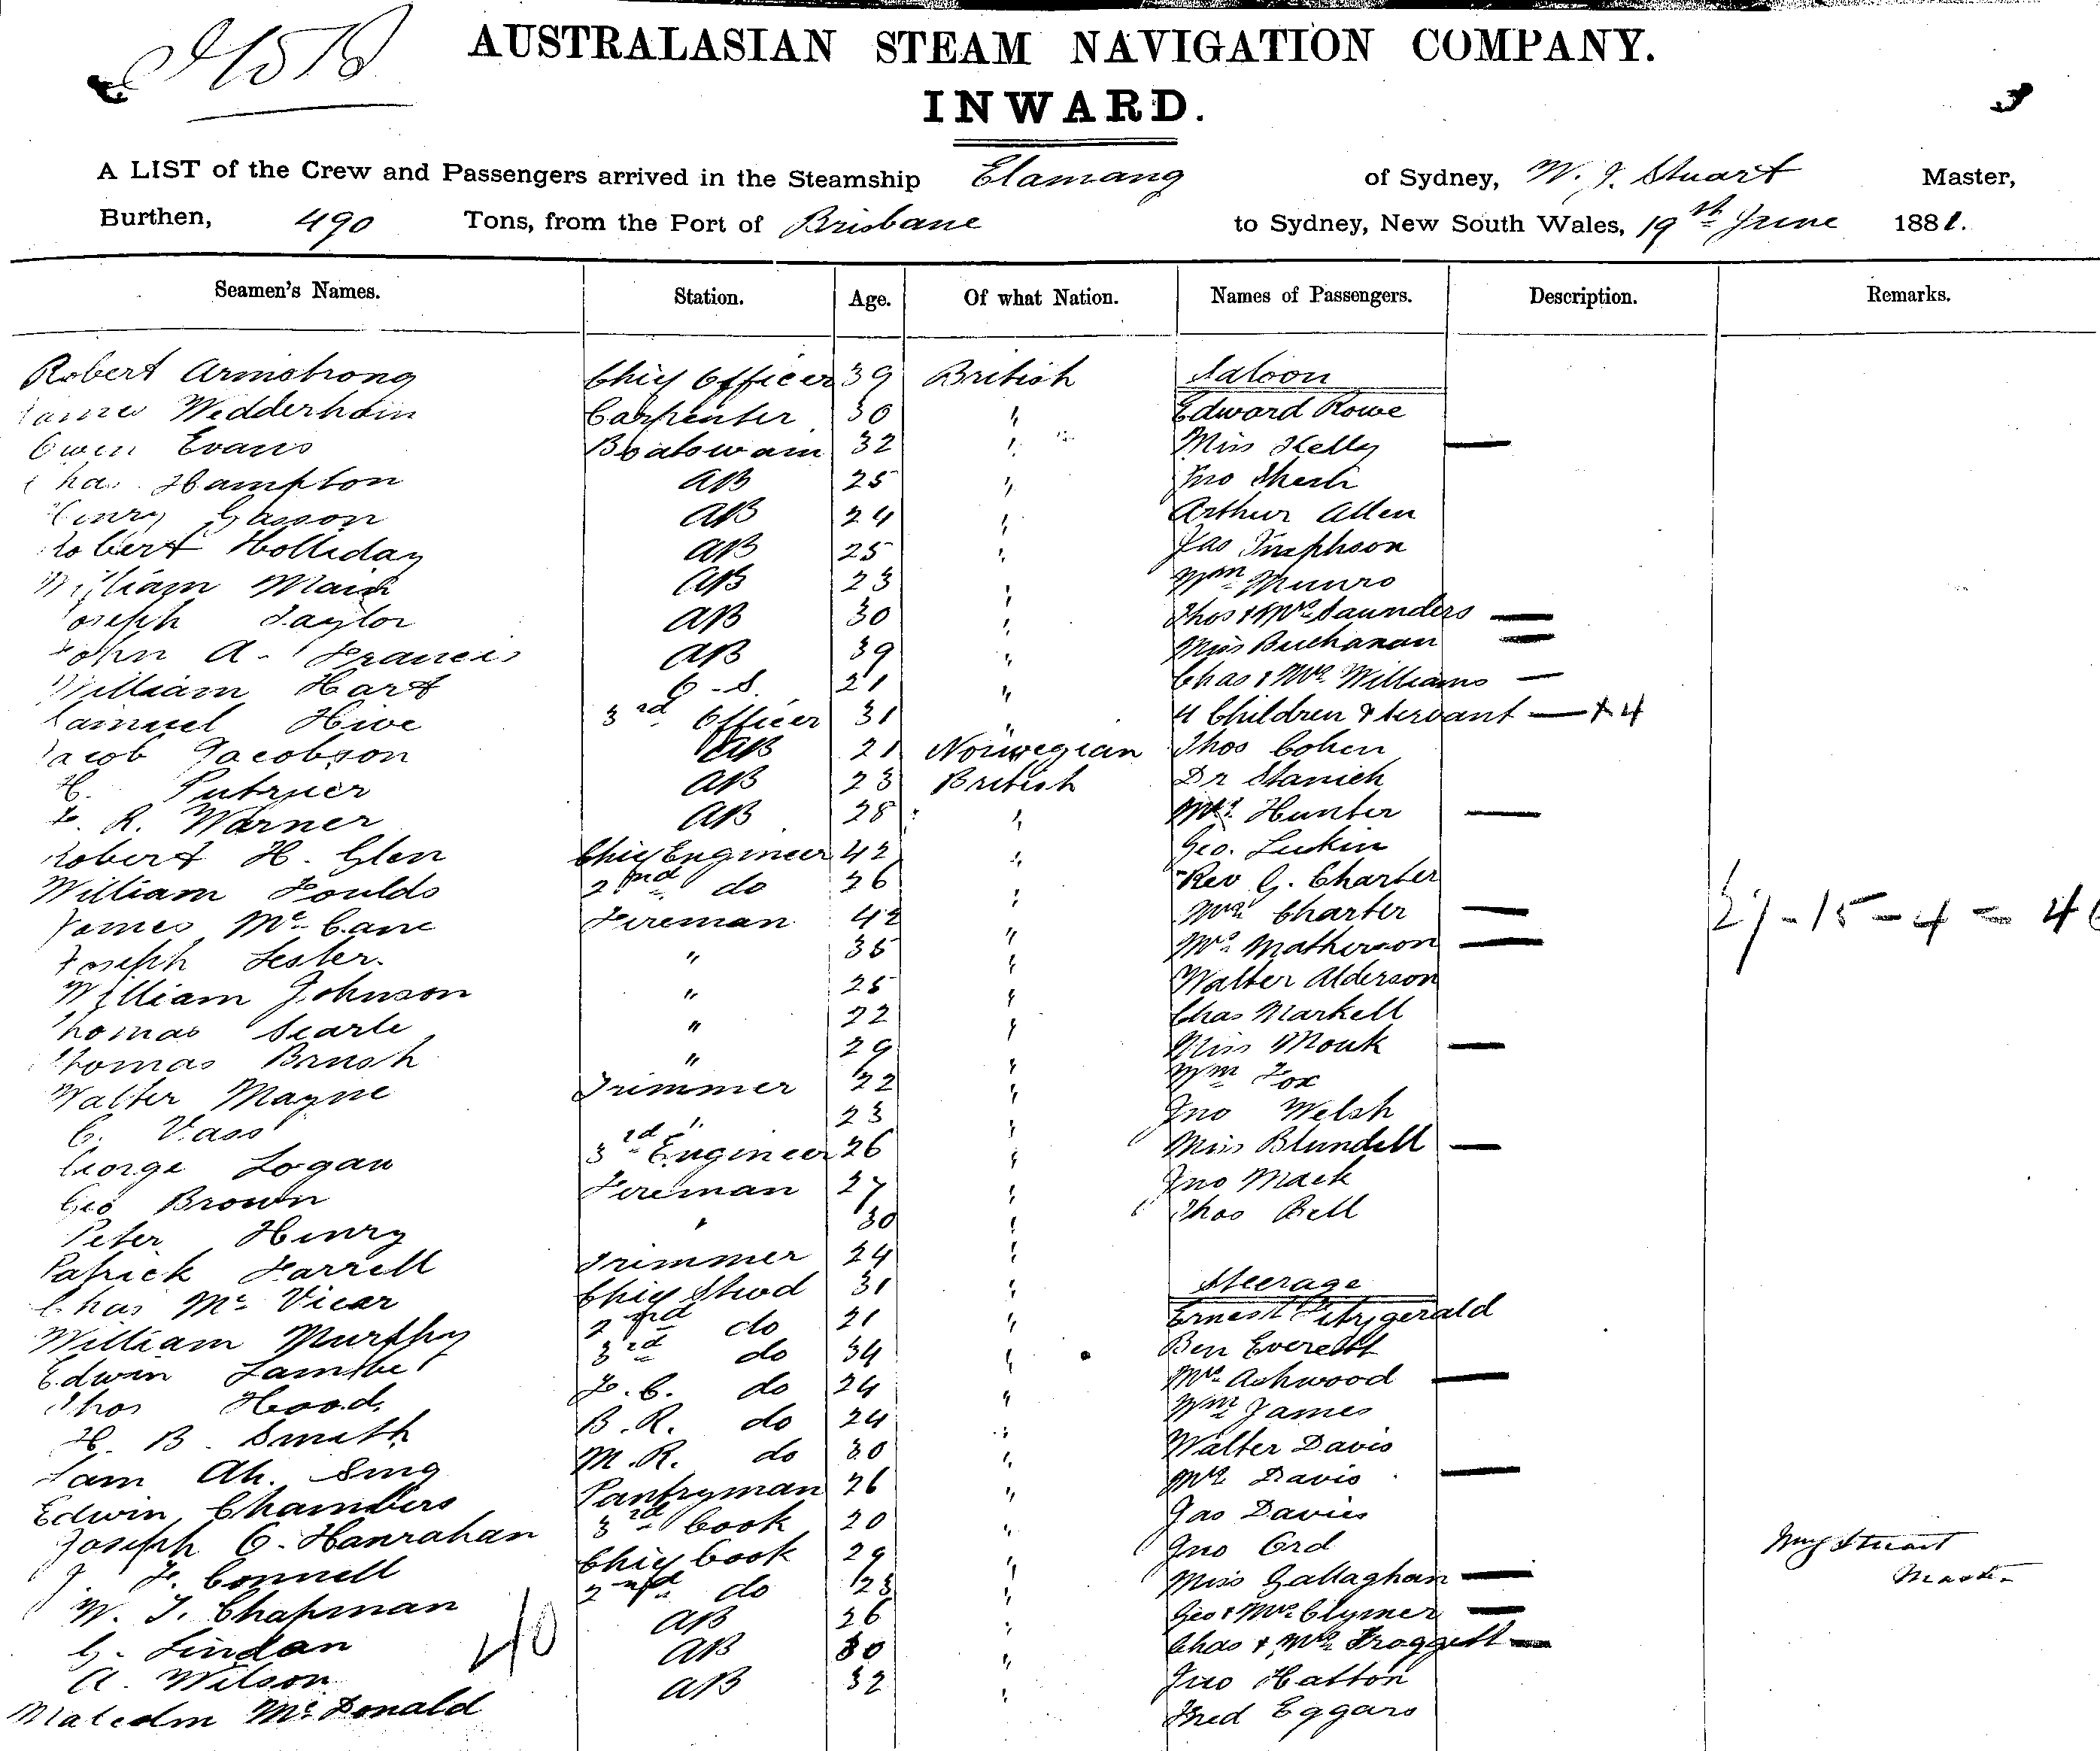 AUSTRALASIAN STEAM NAVIGATION COMPANY.
INWARD.
A LIST of the Crew and Passengers arrived in the Steamship Elamang of Sydney, W. J. Stuart Master,
Burthen, 490 Tons, from the Port of Brisbane to Sydney, New South Wales, 19th June 1881.
Seamen's Names. Station. Age. Of what Nation. Names of Passengers. Description. Remarks.
Robert Armstrong Chief Officer 39 British Saloon
James Wedderhain Carpenter 30 " Edward Rowe
Owen Evans Boatswain 32 " Miss Kelly —
Chas. Hampton AB 25 " Jno
Henry Gasson AB 24 " Arthur Allen
Robert Holliday AB 25 " Jas
William Main AB 23 " Wm Munro
Joseph Taylor AB 30 " Thos & Mrs Saunders —
John A. Francis AB 39 " Miss Buchanan —
William Hart O.S. 21 " Chas & Mrs Williams —
Samuel Hive 3rd Officer 31 " 4 Children & Servant — + 4
Jacob Jacobson AB 21 Norwegian Thos Cohen
H. AB 23 British Dr Stanich
F. R. Warner AB 28 " Mrs Hunter —
Robert H. Glen Chief Engineer 42 " Geo. Lukin
William Foulds 2nd do 26 " Rev G. Charter
James McCane Fireman 42 " Mrs Charter — 27-15-4 = 46
Joseph Lester. " 35 " Mrs Matherson —
William Johnson " 25 " Walter Alderson
Thomas Searle " 22 " Chas Markell
Thomas Brush " 29 " Miss Monk —
Walter Mayne Trimmer 22 " Wm Fox
C. Vass " 23 " Jno Welsh
George Logan 3rd Engineer 26 " Miss Blundell —
Geo Brown Fireman 27 " Jno Mack
Peter Henry " 30 " Thos Bell
Patrick Farrell Trimmer 24 "
Chas McVicar Chief Stwd 31 " Steerage
William Murphy 2nd do 21 " Ernest Fitzgerald
Edwin Lambert 3rd do 34 " Ben Everett
Thos Hood F.C. do 24 " Mrs Ashwood —
H. B. Smith B.R. do 24 " Wm James
Sam Ah. Sing M.R. do 30 " Walter Davis
Edwin Chambers Pantryman 26 " Mrs Davis —
Joseph O. Hanrahan 3rd Cook 20 " Jas Davies
J. F. Connell Chief Cook 29 " Jno Ord Wm J Stuart
W. T. Chapman 2nd do 23 " Miss Gallaghan — Master
G. Lindan AB 26 " Geo & Mrs Clymer —
A. Wilson AB 30 " Chas & Mrs Froggatt —
Malcolm McDonald AB 32 " Jno Hatton
40 Fred Eggars